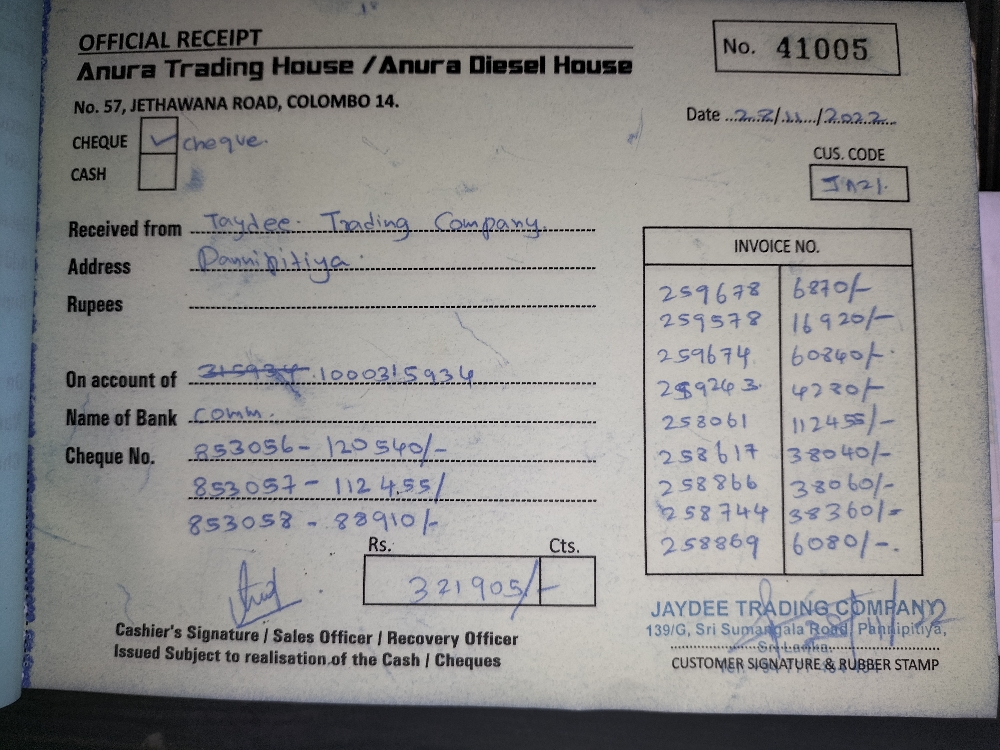 OFFICIAL RECEIPT
Anura Trading House / Anura Diesel House
No. 57, JETHAWANA ROAD, COLOMBO 14.
No. 41005
Date 28/11/2022
CHEQUE ✓ cheque.
CASH
CUS. CODE
JA21.
Received from Jaydee. Trading Company.
Address Pannipitiya.
Rupees
On account of 315934 1000315934
Name of Bank comm.
Cheque No. 853056 - 120540/-
853057 - 112455/
853058 - 88910/-
INVOICE NO.
259678 6870/-
259578 16920/-
259674. 60840/-
259243. 4280/-
258061 112455/-
258617 38040/-
258866 38060/-
258744 38360/-
258869 6080/-.
Rs. Cts.
321905/-
Cashier's Signature / Sales Officer / Recovery Officer
Issued Subject to realisation of the Cash / Cheques
JAYDEE TRADING COMPANY
139/G, Sri Sumangala Road, Pannipitiya,
Sri Lanka.
CUSTOMER SIGNATURE & RUBBER STAMP